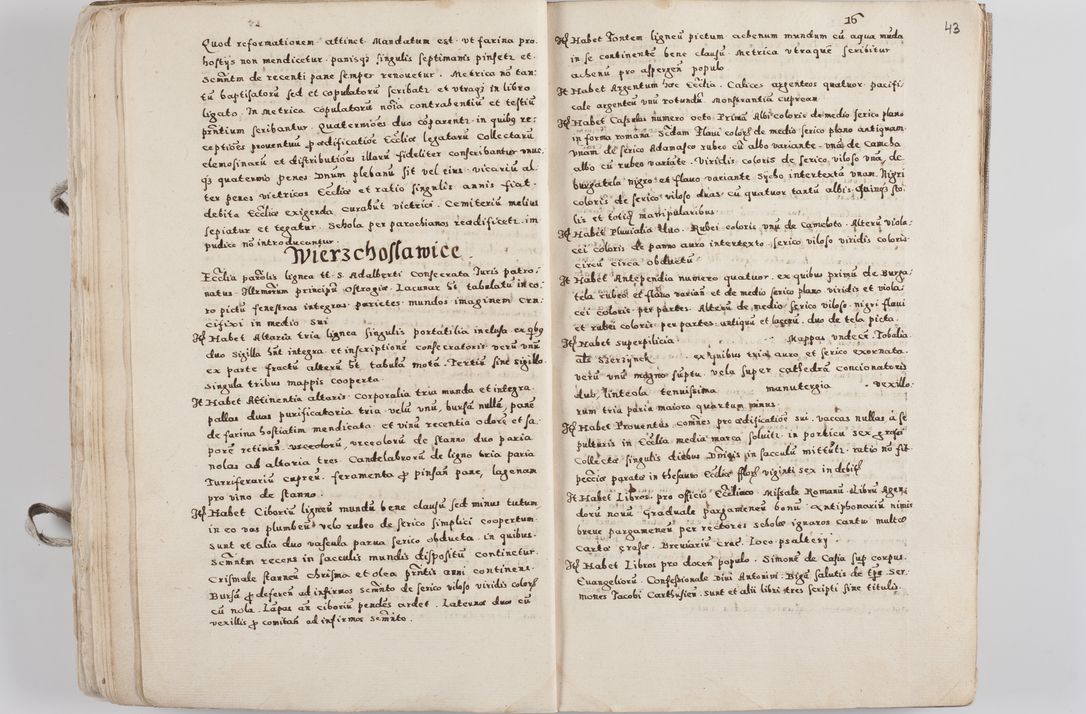 Quod reformationem attinet Mandatum est. vt farina pro.
hostijs non mendicetur. panisq3 singulis septimanis pinsetr et.
Scm̄ntm de recenti pane semper renouetur. Metrica nō tan:
tū baptisatorū sed et copulatorū scribatr et vtraq3 in libro
ligato. In Metrica copulatorū noīa contrahentiū et testiū
pr̄ntium scribantur. Quaterniōes duo cōparentr in quibꝰ re:
ceptiōes prouentuū ꝓ ædificatiōe Eccl̄iæ legatorū Collectarū
elemosinarū et distributiōes illarū fideliter conscribantur vnus
q3 quaternio penes Dnum plebanū sit vel eius. vicariū al:
ter penes victricos Eccl̄iæ et ratio singulis annis fiat.
debita Eccl̄iæ exigenda curabūt victrici. Cemiteriū melius
sepiatur et tegatur. Schola per parochianos reædificetr. im
pudicæ nō introducantur.
Wierzchosławice
Eccl̄ia parōlis lignea tt. S. Adalberti Consecrata Iuris patro:
natus Illrmorum principū Ostrogiæ. Lacunar ht̄ tabulatū in co:
ro pictū fenestras integras. parietes mundos imaginem Cru:
cifixi in medio sui
Itē Habet Altaria tria lignea singulis portatilia inclusa ex qbꝰ
duo sigilla hn̄t integra et inscriptionē consecratoris verū vnū
ex parte fractū alterū ht̄ tabulā motā. Tertiū sine sigillo.
singula tribus mappis cooperta.
It Habet Attinentia altaris. Corporalia tria munda et integra.
pallas duas purificatoria tria velū vnū, bursā nullā, panē
de farina hostiatim mendicata et vinū recentia odorē et sa:
porē retinen̄. vrceolorū de stanno duo paria
nolas ad altaria tres Candelabrorū de ligno tria paria
Turriferariū cupreū. feramenta ꝓ pinsan̄ pane, lagenam
pro vino de stanno.
Itē Habet Ciboriū ligneū mundū bene clausū sed minus tutum
in eo vas plumbeū velo rubeo de serico simplici coopertum.
sunt et alia duo vascula parua serico obducta. in quibus.
Scm̄ntm recens in sacculis mundis dispositū continetur.
Crismale stanneū chrisma et olea pr̄ntis anni continens.
Bursā ꝓ deferen̄ ad infirmos Scm̄nto de serico viloso viridis coloris
cū nola. Lāpas an̄ ciboriū pendēs ardet. Laternæ duæ cū
vexillis ꝓ comitan̄ ad infirmos Scm̄nto.
16
43
Itē Habet Fontem ligneū pictum achenum mundum cū aqua mūda
in se continentē bene clausū Metrica vtraque scribitur
achenū pro aspergen̄ populo
It Habet Argentum hoc Eccl̄ia. Calices argenteos quatuor pacifi:
cale argenteū vnū rotundū Monstrantiā cupream
Itē Habet Casulas numero octo. Primā Albi coloris de medio serico plano
in forma romana Sc̄dam Flaui coloris de medio serico plano antiquam.
vnam de serico Adamasco rubeo cū albo variante. vnā de Camcha
albo cū rubeo variāte. Viridis coloris de serico viloso vnā, de
burgatela nigro et flauo variante Sycbo intertexta vnam. Nigri
coloris de serico viloso duas cū quatuor tantū albis. Quinq3 sto:
lis et totiq3 manipularibus
It Habet Pluuialia duo. Rubei coloris vnū de Cameloto. Alterū viola:
cei coloris de panno auro intertexto serico viloso viridis coloris
circū circa obductū
It Habet Antependia numero quatuor. ex quibus primū de Burga:
tela rubeo et flauo varian̄ et de medio serico plano viridis et viola:
cei coloris per partes. Alterū de medio serico viloso. nigri flaui
et rubei coloris per partes. antiquū et lacerū. duo de tela picta.
It Habet superpilicia Mappas vndecī Tobalia
als Szerzynek ex quibus tria auro et serico exornata.
verū vnū magno sūptu. vela super cathedrā concionatoris
duo, linteola tenuissima manutergia vexillo:
rum tria paria maiora quartum minus.
Itē Habet Prouentus cōmnes pro ædificatiōe sui. vaccas nullas ā se
pulturis in Eccl̄ia media marca soluitr in porticu sex grossi
Collecta singulis diebus Dn̄icis in sacculū mittūtr. ratio nō fit.
pecciæ parata in thesauro Eccl̄iæ fflor̄ viginti sex in debitis
It Habet Libros. pro officio Eccl̄inco. Missale Romanū Librū Agen:
dorū nouū Graduale pargameneū bonū Antiphonariū nimis
breue pargameneū per rectores scholæ ignaros cantu multæ
cartæ grosæ. Breuiariū Crac. loco psalterij
It Habet Libros pro docen̄ populo. Simonē de Casia sup corpus.
Euangeliorū. Confessionale Diui Antonini. Bigā salutis de tp̄e Ser:
mones Iacobi Carthusien̄. sunt et alij libri tres scripti sine titulis.